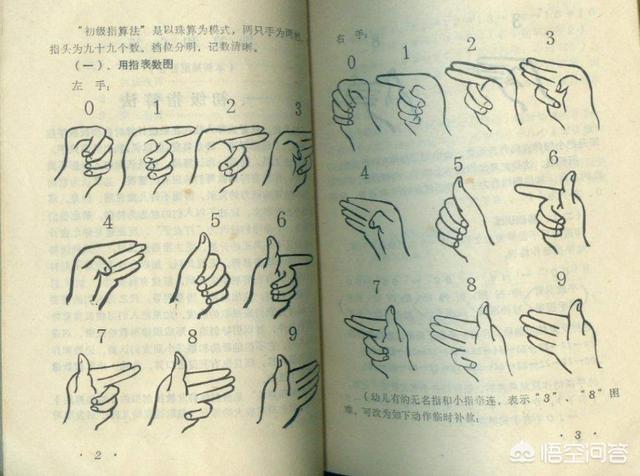 “初级指算法”是以珠算为模式，两只手为两
指头为九十九个数。档位分明，记数清晰。
（一）、用指表数图
左 手：
0 1 2 3
4 5 6
7 8 9
· 2 ·
右 手：
0 1 2 3
4 5 6
7 8 9
（幼儿有的无名指和小指牵连，表示“3”、“8”困
难，可改为如下动作临时补救：
· 3 ·
悟空问答